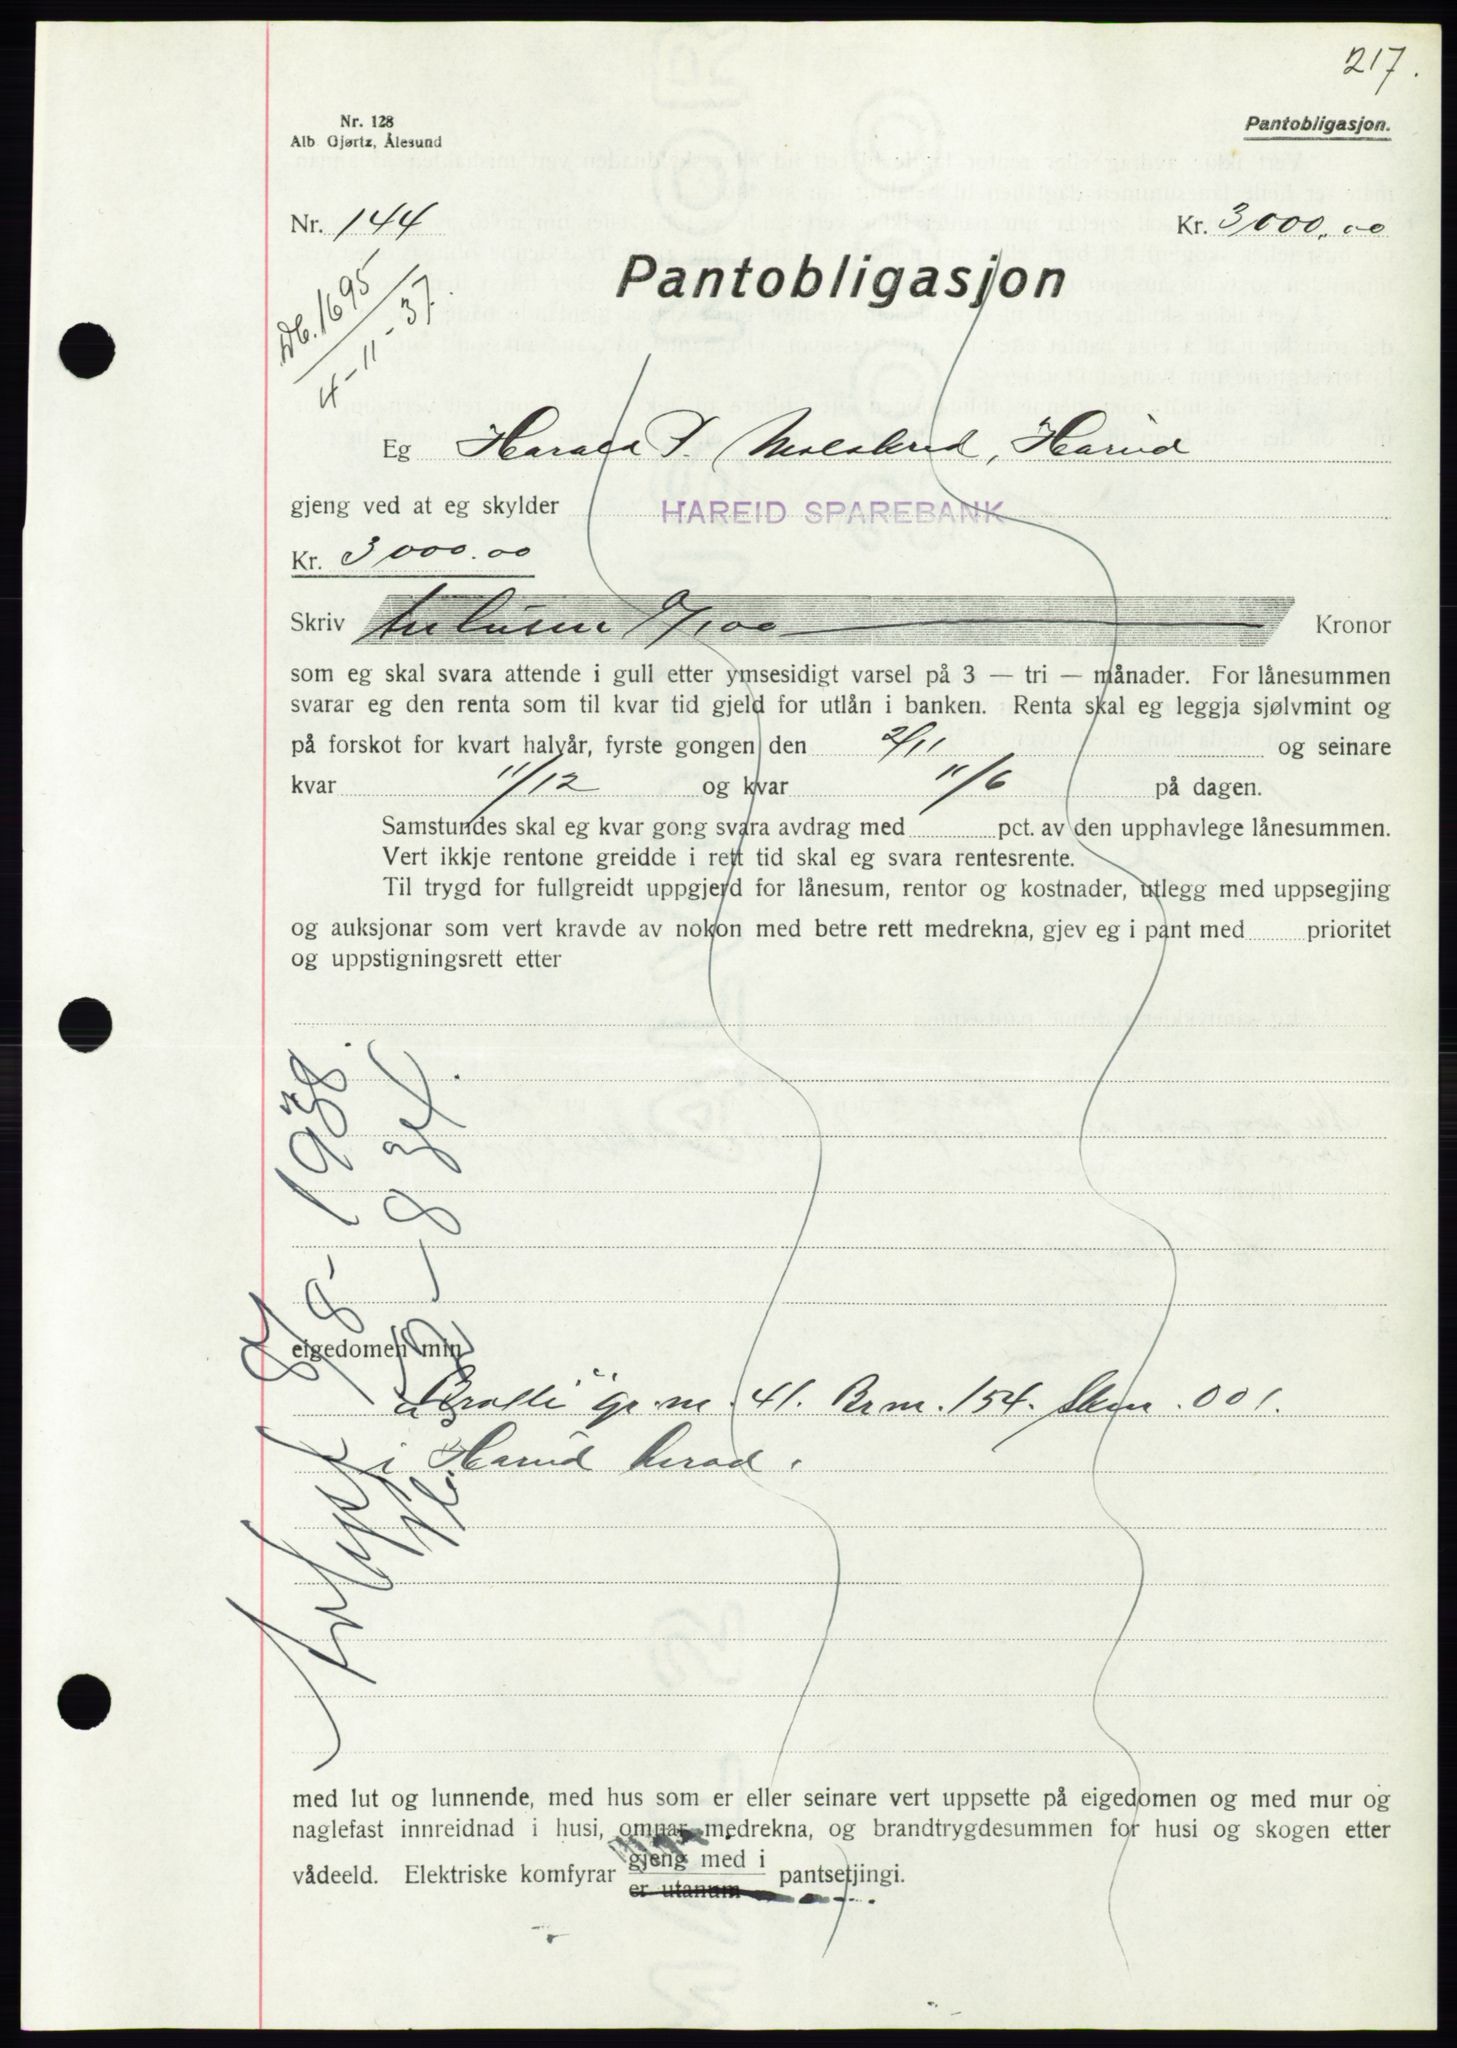 217.
Nr. 128
Alb Gjørtz, Ålesund
Pantobligasjon.
Nr. 144
Kr. 3000.00
Db. 1695
4-11-37.
Pantobligasjon
Eg Harald P. Hareid
gjeng ved at eg skylder HAREID SPAREBANK
Kr. 3000.00
Skriv tritusen 0/100 Kronor
som eg skal svara attende i gull etter ymsesidigt varsel på 3 — tri — månader. For lånesummen
svarar eg den renta som til kvar tid gjeld for utlån i banken. Renta skal eg leggja sjølvmint og
på forskot for kvart halvår, fyrste gongen den 2/11 og seinare
kvar 11/12 og kvar 11/6 på dagen.
Samstundes skal eg kvar gong svara avdrag med pct. av den upphavlege lånesummen.
Vert ikkje rentone greidde i rett tid skal eg svara rentesrente.
Til trygd for fullgreidt uppgjerd for lånesum, rentor og kostnader, utlegg med uppsegjing
og auksjonar som vert kravde av nokon med betre rett medrekna, gjev eg i pant med prioritet
og uppstigningsrett etter
eigedomen min
gr. nr. 41. Br nr. 154. Skm. 001.
i Hareid herad.
Avlyst 8/8-1938.
med lut og lunnende, med hus som er eller seinare vert uppsette på eigedomen og med mur og
naglefast innreidnad i husi, omnar medrekna, og brandtrygdesummen for husi og skogen etter
vådeeld. Elektriske komfyrar gjeng med i pantsetjingi.
er utanum